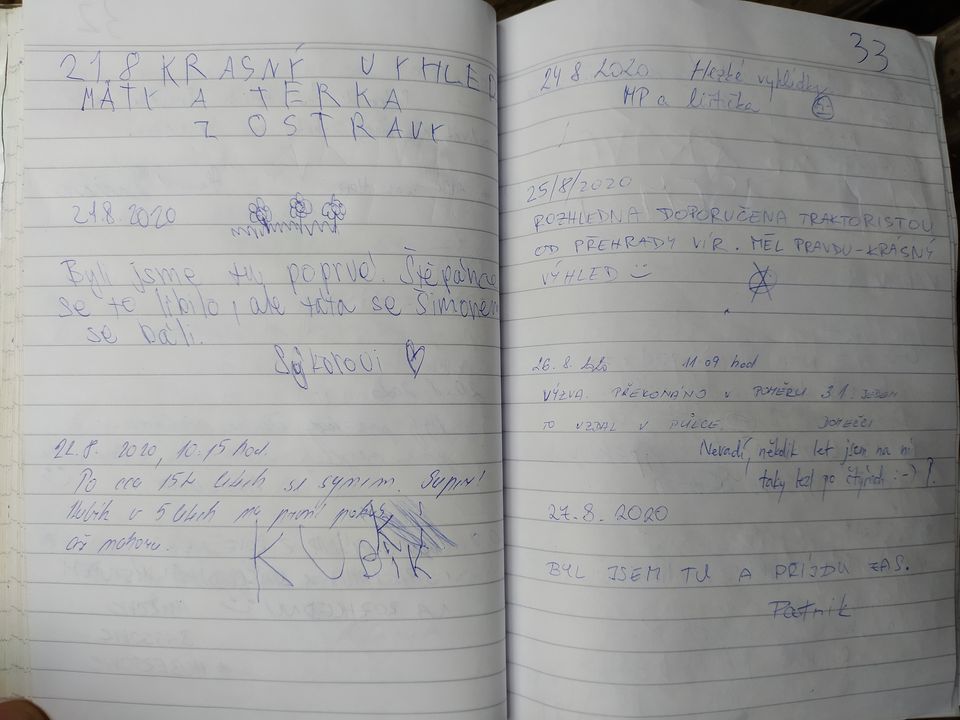 21.8 KRASNÝ VYHLED
MÁTY A TERKA
Z OSTRAVY
21.8.2020
Byli jsme tu poprvé! Štěpánce
se to líbilo, ale táta se Šimonem
se báli.
Sýkorovi
22.8. 2020, 10.15 hod.
Po cca 15ti letech se synem. Super!
Kubík v 5 letech na první pokus
až nahoru.
KUBÍK
33
24 8 2020 Hezké vyhlídky
MP a lištička
25/8/2020
ROZHLEDNA DOPORUČENA TRAKTORISTOU
OD PŘEHRADY VÍR. MĚL PRAVDU-KRÁSNÝ
VÝHLED
26.8. 2020 11 09 hod
VÝZVA PŘEKONÁNO V POMĚRU 3:1. JEDEN
TO VZDAL V PŮLCE.
Nevadí, někdik let jsem na ni
taky lezl po čtyřech :-)
27.8.2020
BYL JSEM TU A PŘÍJDU ZAS.
Patrik